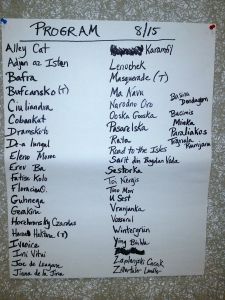 PROGRAM 8/15
Alley Cat
Adjon az Isten
Batra
Bufcansko (T)
Ciuliandra
Cobankat
Dramskoto
De-a lungul
Eleno Mome
Erev Ba
Fatise Kolo
Floricica
Guhnega
Gerakina
Horehronsky Czardas
Harmonica (T)
Ivanica
Imi Vitui
Joc de Leagane
Jiana de la Jina
Karamfil
Lenochek
Masquerade (T)
Ma Navu
Narodno Oro
Orska Groska
Pasarelska
Rata
Road to the Isles
Sarit din Bogdan Voda
Sestorka
Toi Nergis
Two Mor
U Sest
Vranjanka
Vossarul
Wintergrün
Ying BinWu
Zaplanjski Cacak
Zillertaler Laendler
Basina
Dondogorn
Bacimis
Minka
Paraliakos
Tognala
Ramjana